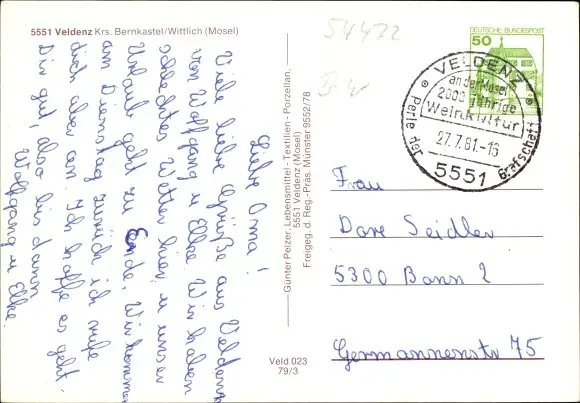 5551 Veldenz Krs. Bernkastel/Wittlich (Mosel)
Liebe Oma!
Viele liebe Grüße aus Veldenz
von Wolfgang u Elke. Wir haben
schlechtes Wetter hier u unser
Urlaub geht zu Ende. Wir kommen
am Dienstag zurück ich rufe
dich aber an. Ich hoffe es geht
Dir gut, also bis dann
Wolfgang u Elke.
Günter Pelzer, Lebensmittel - Textilien - Porzellan,
5551 Veldenz (Mosel)
Freigeg. d. Reg.-Präs. Münster 5552/78
Veld 023
79/3
54432
DEUTSCHE BUNDESPOST
50
VELDENZ
an der Mosel
2000 jährige
Weinkultur
27.7.81.-16
5551
Perle der Grafschaft
Frau
Dore Seidler
5300 Bonn 2
Germannenstr 75